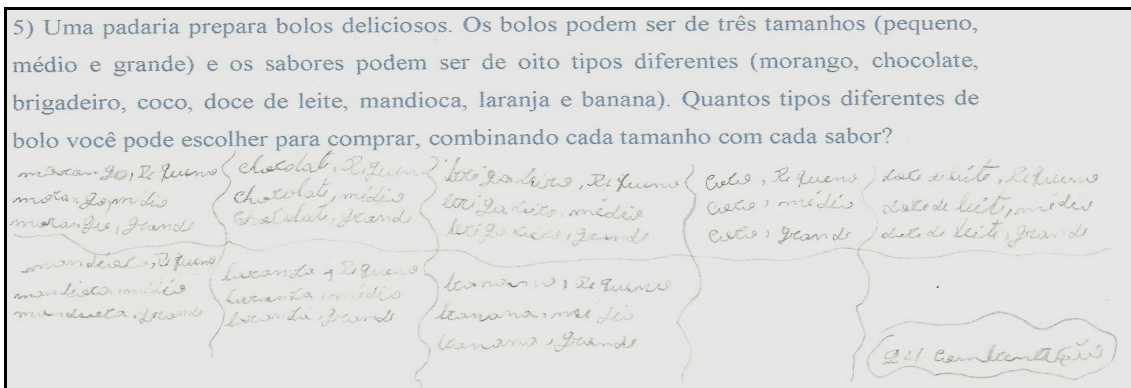 5) Uma padaria prepara bolos deliciosos. Os bolos podem ser de três tamanhos (pequeno,
médio e grande) e os sabores podem ser de oito tipos diferentes (morango, chocolate,
brigadeiro, coco, doce de leite, mandioca, laranja e banana). Quantos tipos diferentes de
bolo você pode escolher para comprar, combinando cada tamanho com cada sabor?
morango, Pequeno
morango, médio
morango, grande
chocolat, Pequeno
chocolat, médio
chocolat, grande
brigadeiro, Pequeno
brigadeiro, médio
brigadeiro, grande
coco, Pequeno
coco, médio
coco, grande
doce de leite, Pequeno
doce de leit, médio
doce de leite, grande
mandioca, Pequeno
mandioca, médio
mandioca, grande
laranja, Pequeno
laranja, médio
laranja, grande
banana, Pequeno
banana, médio
banana, grande
24